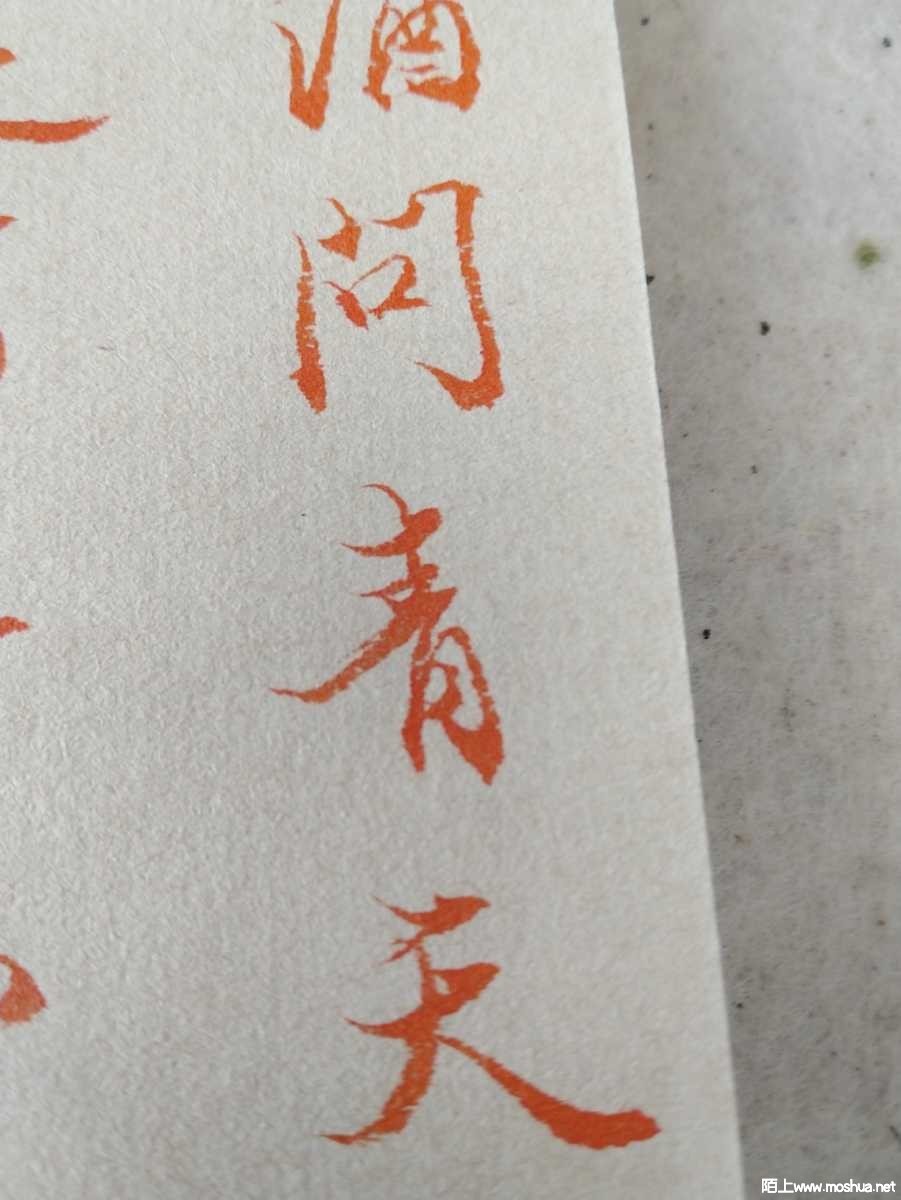 酒问青天
陌上www.moshua.net